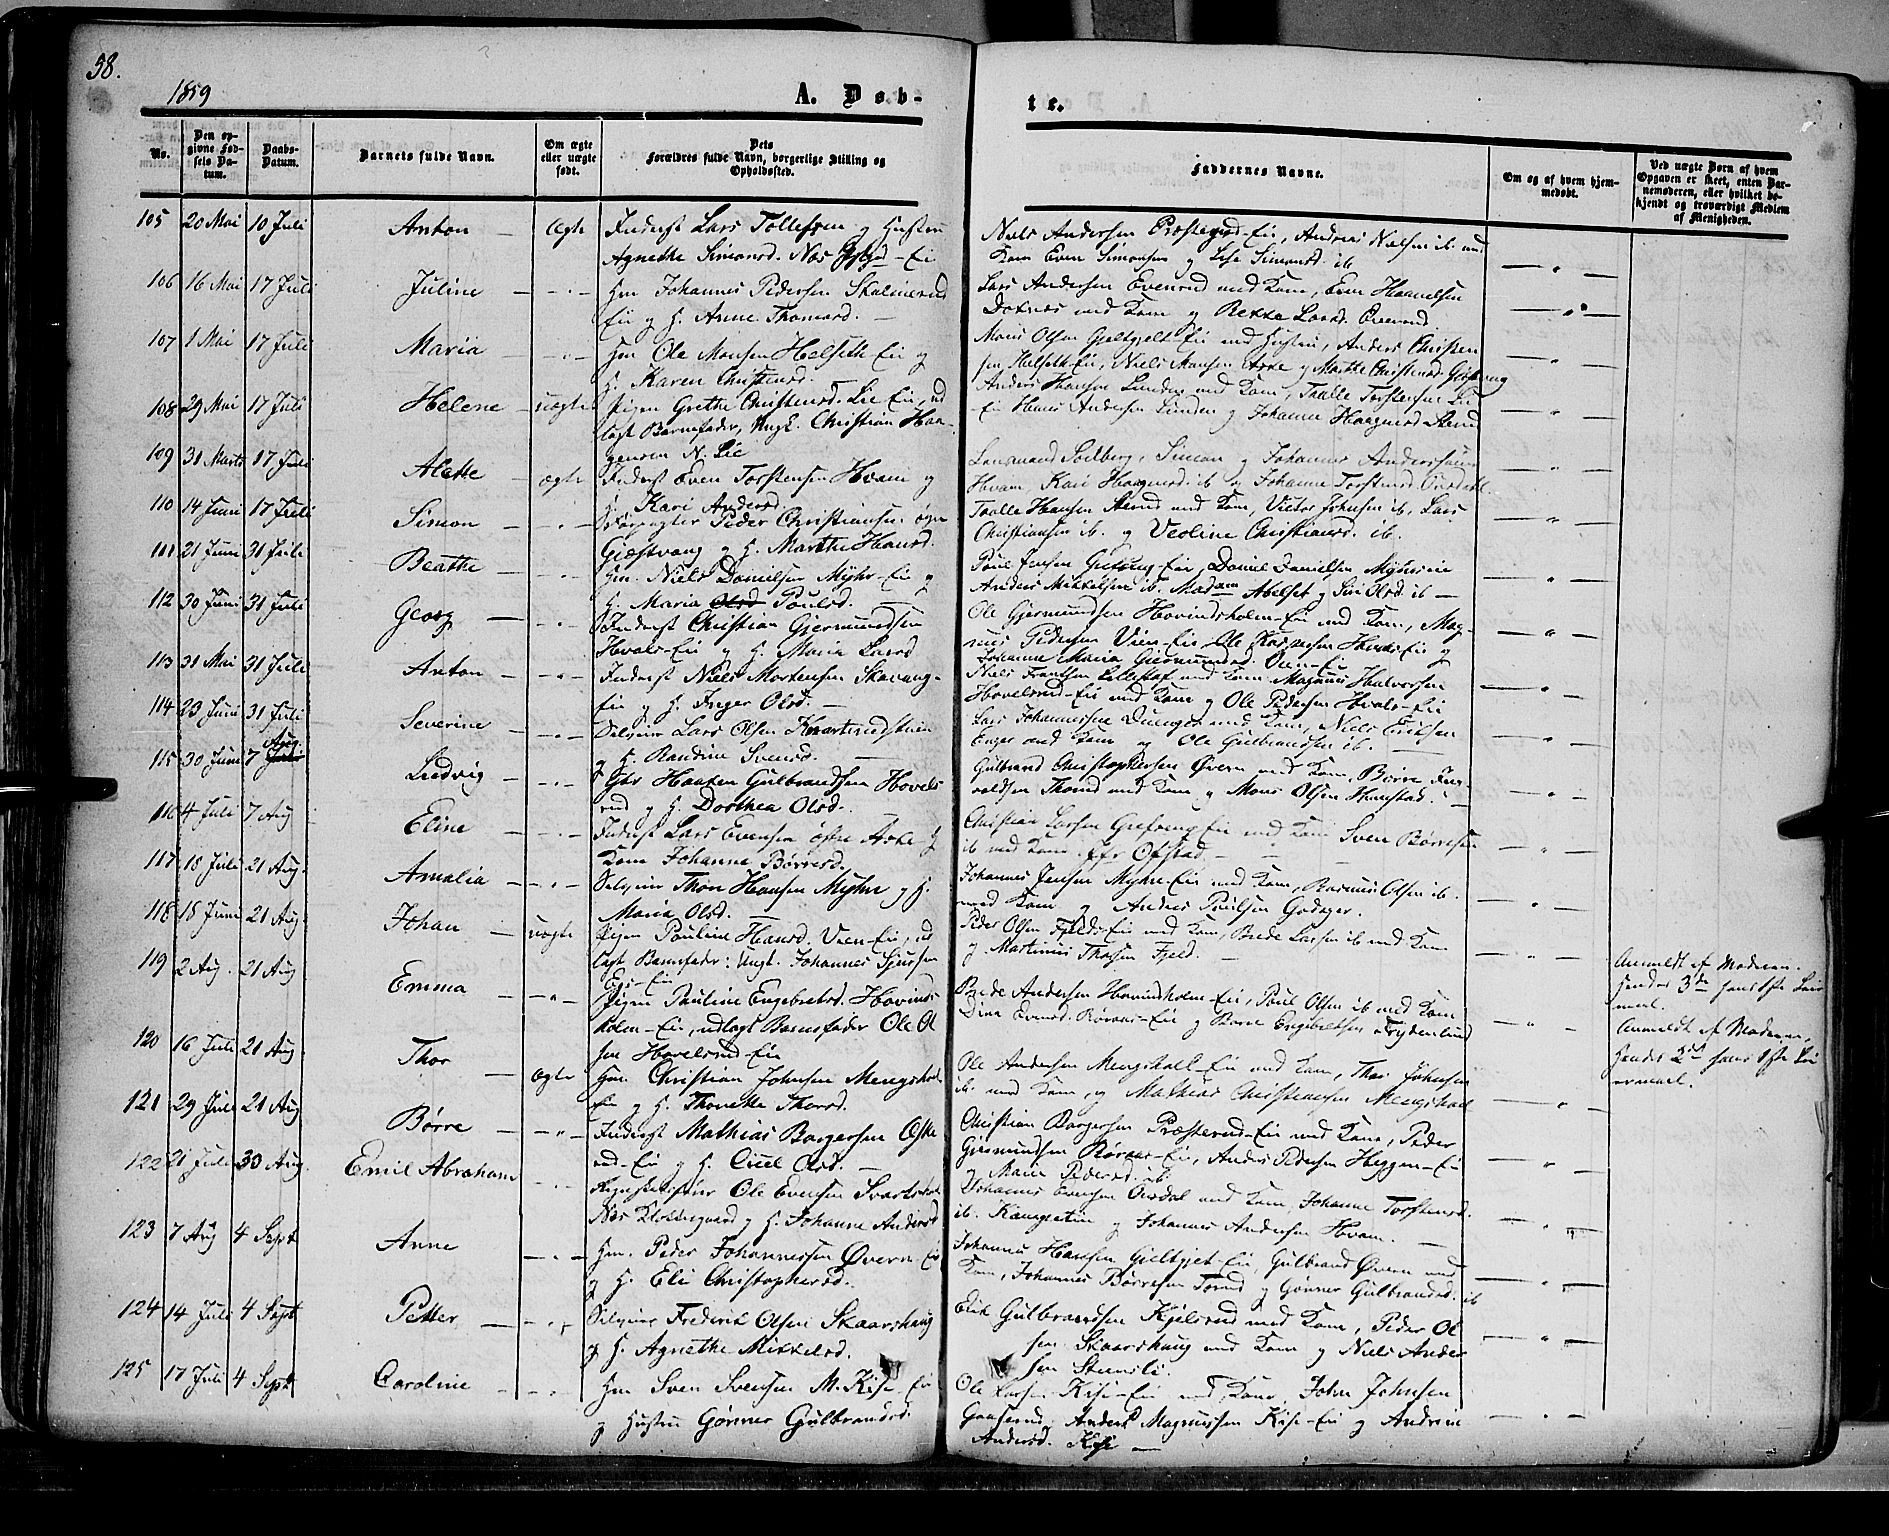 58.
1859
A. Døb-
te.
No.
Den op-
givne Fød-
sels Da-
tum.
Daabs-
Datum.
Barnets fulde Navn.
Om ægte
eller uægte
født.
Dets
Forældres fulde Navn, borgerlige Stilling og
Opholdssted.
Faddernes Navne.
Om og af hvem hjem-
medøbt.
Ved uægte Børn af hvem
Opgaven er skeet, enten Bar-
nemoderen, eller hvilket be-
kjendt og troværdigt Medlem
af Menigheden.
105 20 Mai 10 Juli Anton Ægte Inderst Lars Tollefsen og Hustru
Agnethe Simonsd. Næs - Eie
Niels Andersen Præsterud-Eie, Andreas Nielsen ib. med
Kone Even Simonsen og Lise Simonsd. ib
106 16 Mai 17 Juli Juline Hm Johannes Pedersen Skolmerud
Eie og H. Anne Thomasd.
Lars Andersen Evenrud med Kone, Even Haagensen
med Kone og Larsd. Evenrud
107 1 Mai 17 Juli Maria Hm Ole Monsen Helseth-Eie og
H. Karen Christensd.
Mons Olsen -Eie med Hustru, Anders Christen
sen, Helseth-Eie, Niels Monsen og Marthe Christensd.
108 29 Mai 17 Juli Helene uægte Pigen Grethe Christensd. Lie Eie, ud
lagt Barnefader, Ungk. Christian Haa-
gensen N. Lie
Anders Hansen Lunden med Kone, Taalle Torstensen Lie
Eie Hans Andersen Lunden og Johanne Haagensd.
109 31 Marts 17 Juli Alette ægte Inderst Even Torstensen Hvam og
H. Kari Andersd.
Lensmand Solberg, Simon og Johannes Anderssønner
Hvam, Kari Haagensd. ib og Johanne Torstensd.
110 14 Juni 17 Juli Simon Forpagter Peder Christiansen øvre
Gjæstvang og H. Marthe Hansd.
Taalle Hansen med Kone, Victor Johnsen ib, Lars
Christiansen ib. og Veoline Christiansd. ib.
111 21 Juni 31 Juli Beathe Hm. Niels Danielsen Myhr-Eie og
H. Maria Olsd Poulsd.
Poul Jensen -Eie, Daniel Danielsen
Anders Mikkelsen ib. Madam Abelset og Siri Olsd ib
112 30 Juni 31 Juli Georg Inderst Christian Gjermundsen
Hvals-Eie og H. Maria Larsd
Ole Gjermundsen Hovindsholm-Eie med Kone, Mag-
nus Pedersen Vien-Eie, Ole og
Johanne Maria Gjermundsd.
113 31 Mai 31 Juli Anton Inderst Niels Mortensen Skavang-
Eie og H. Inger Olsd.
Niels Frantsen med Kone Magnus Halvorsen
Hovelsrud-Eie med Kone og Ole Pedersen Hvals-Eie
114 23 Juni 31 Juli Severine Selveier Lars Olsen
og H. Randine Svensd.
Lars Johannessen med Kone, Niels Eriksen
Enger med Kone og Ole Gulbrandsen ib.
115 30 Juni 7 Aug Ludvig Gbr Hansen Gulbrandsen Hovels
rud og H. Dorthea Olsd.
Gulbrand Christophersen Øvern med Kone, Børre
med Kone og Mons Olsen
116 4 Juli 7 Aug Eline Inderst Lars Evensen øfre og
Kone Johanne Børresd.
Christian Larsen Grefseng Eie med Kone Sven Børresen
ib med Kone. Ofstad.
117 18 Juli 21 Aug. Amalia Selveier Thor Hansen Myhre og H.
Maria Olsd.
Johannes Jensen Myhre-Eie med Kone, Rasmus Olsen ib.
med Kone og Anders Poulsen Godager.
118 18 Juni 21 Aug. Johan uægte Pigen Pauline Hansd. Vien-Eie, ud
lagt Barnefader: Ungk. Johannes Sjursen
Eie
Peder Olsen Fjeld-Eie med Kone, Brede Larsen ib med Kone
og Martinius Thorsen Fjeld.
Anmeldt af Moderen.
Hendes 3de hans 1ste Leier
maal.
119 2 Aug. 21 Aug Emma Pigen Pauline Engebretsd. Hovinds
holm-Eie, udlagt Barnefader Ole Ol
sen Hovelsrud-Eie
Brede Andersen Hovindsholm-Eie, Poul Olsen ib med Kone
Dina Evensd. Røraas-Eie og Børre Engebretsen Frydenlund
Anmeldt af Moderen,
Hendes 2det hans 1ste Lei
ermaal.
120 16 Juli 21 Aug. Thor ægte Hm. Christian Johnsen Mengshoel
Eie og H. Thorette Thorsd.
Ole Andersen Mengshoel-Eie med Kone, Thor Johnsen
ib. med Kone, og Mathias Christiansen Mengshoel
121 29 Juli 21 Aug Børre Inderst Mathias Borgersen
rud-Eie og H. Olsd.
Christian Borgersen Præsterud-Eie med Kone, Peder
Gjermundsen Røraas-Eie, Anders Pedersen Heggen-Eie
og Marie Pedersd. ib.
122 21 Juli 30 Aug. Emil Abraham Ole Evensen
Næs Klokkergaard og H. Johanne Andersd.
Johannes Evensen med Kone, Johanne Torstensd.
ib. og Johannes Andersen Hvam.
123 7 Aug 4 Sept Anne Hm. Peder Johannessen Øvern Eie
og H. Eli Christophersd.
Johannes Hansen -Eie, Gulbrand Øvern med
Kone, Johannes Børresen og Gønner Gulbrandsd. ib
124 14 Juli 4 Sept Petter Selveier Frederik Olsen Skaarshaug
og H. Agnethe Mikkelsd.
Erik Gulbrandsen Kjelsrud med Kone, Peder Ol
sen Skaarshaug med Kone og Niels Ander
sen Steensli.
125 17 Juli 4 Sept Caroline Hm Sven Svensen M. Kise-Eie
og Hustru Gønner Gulbrandsd.
Ole Larsen Kise-Eie med Kone, John Johnsen
Gaaserud, Anders Magnussen Kise-Eie og Andrine
Andersd. Kise